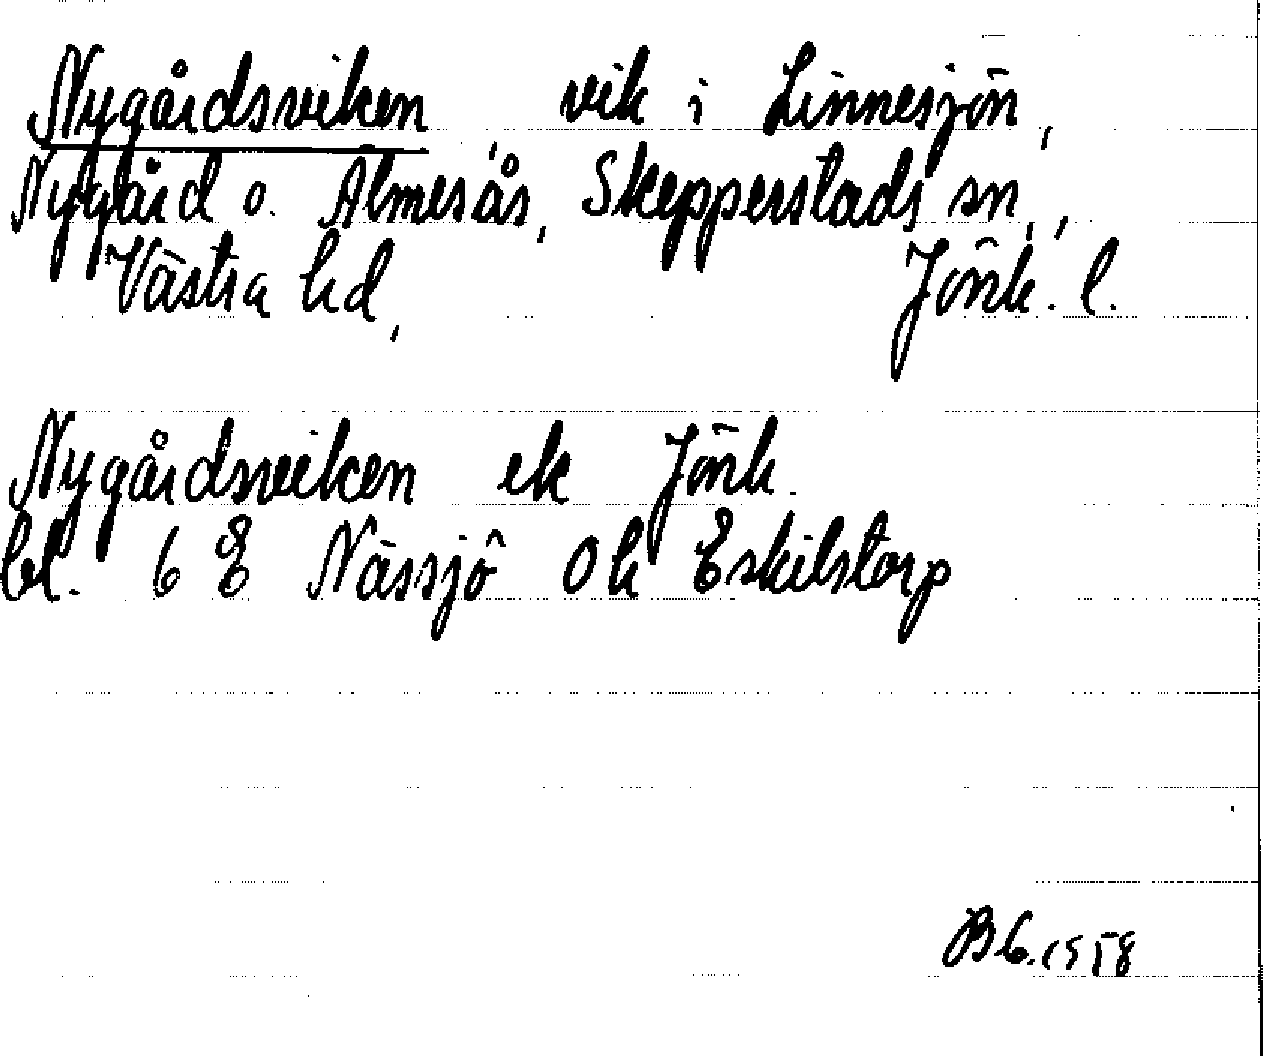 Nygårdsviken, vik i Linnesjön,
Nygård o. Almesås, Skepperstads sn,
Västra hd, Jönk. l.
Nygårdsviken ek Jönk.
bl. 6 E Nässjö Ok Eskilstorp